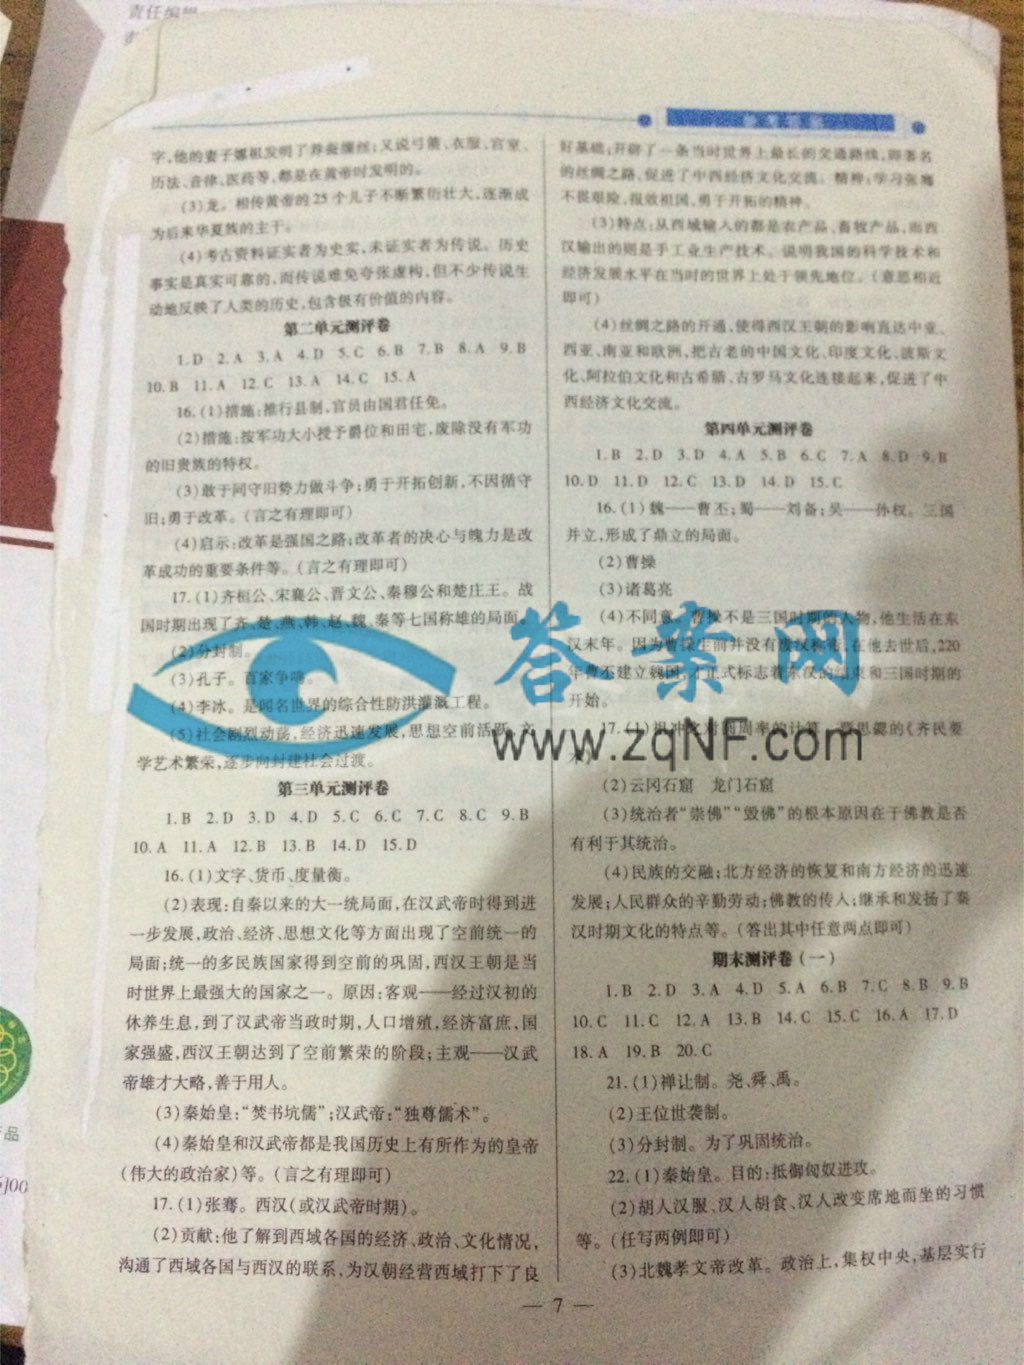 责任编辑
参考答案
字,他的妻子嫘祖发明了养蚕缫丝;又说弓箭、衣服、宫室、
历法、音律、医药等,都是在黄帝时发明的。
(3)龙。相传黄帝的25个儿子不断繁衍壮大,逐渐成
为后来华夏族的主干。
(4)考古资料证实者为史实,未证实者为传说。历史
事实是真实可靠的,而传说难免夸张虚构,但不少传说生
动地反映了人类的历史,包含极有价值的内容。
第二单元测评卷
1.D 2.A 3.A 4.D 5.C 6.B 7.B 8.A 9.B
10.B 11.A 12.C 13.A 14.C 15.A
16.(1)措施:推行县制,官员由国君任免。
(2)措施:按军功大小授予爵位和田宅,废除没有军功
的旧贵族的特权。
(3)敢于同守旧势力做斗争;勇于开拓创新,不因循守
旧;勇于改革。(言之有理即可)
(4)启示:改革是强国之路;改革者的决心与魄力是改
革成功的重要条件等。(言之有理即可)
17.(1)齐桓公、宋襄公、晋文公、秦穆公和楚庄王。战
国时期出现了齐、楚、燕、韩、赵、魏、秦等七国称雄的局面。
(2)分封制。
(3)孔子。百家争鸣。
(4)李冰。是闻名世界的综合性防洪灌溉工程。
(5)社会剧烈动荡,经济迅速发展,思想空前活跃,文
学艺术繁荣,逐步向封建社会过渡。
第三单元测评卷
1.B 2.D 3.D 4.D 5.C 6.C 7.C 8.C 9.B
10.A 11.A 12.B 13.B 14.D 15.D
16.(1)文字、货币、度量衡。
(2)表现:自秦以来的大一统局面,在汉武帝时得到进
一步发展,政治、经济、思想文化等方面出现了空前统一的
局面;统一的多民族国家得到空前的巩固,西汉王朝是当
时世界上最强大的国家之一。原因:客观——经过汉初的
休养生息,到了汉武帝当政时期,人口增殖,经济富庶,国
家强盛,西汉王朝达到了空前繁荣的阶段;主观——汉武
帝雄才大略,善于用人。
(3)秦始皇:“焚书坑儒”;汉武帝:“独尊儒术”。
(4)秦始皇和汉武帝都是我国历史上有所作为的皇帝
(伟大的政治家)等。(言之有理即可)
17.(1)张骞。西汉(或汉武帝时期)。
(2)贡献:他了解到西域各国的经济、政治、文化情况,
沟通了西域各国与西汉的联系,为汉朝经营西域打下了良
好基础;开辟了一条当时世界上最长的交通路线,即著名
的丝绸之路,促进了中西经济文化交流。精神:学习张骞
不畏艰险,报效祖国,勇于开拓的精神。
(3)特点:从西域输入的都是农产品、畜牧产品,而西
汉输出的则是手工业生产技术。说明我国的科学技术和
经济发展水平在当时的世界上处于领先地位。(意思相近
即可)
(4)丝绸之路的开通,使得西汉王朝的影响直达中亚、
西亚、南亚和欧洲,把古老的中国文化、印度文化、波斯文
化、阿拉伯文化和古希腊、古罗马文化连接起来,促进了中
西经济文化交流。
第四单元测评卷
1.B 2.D 3.D 4.A 5.B 6.C 7.A 8.D 9.B
10.D 11.D 12.C 13.D 14.D 15.C
16.(1)魏——曹丕;蜀——刘备;吴——孙权。三国
并立,形成了鼎立的局面。
(2)曹操
(3)诸葛亮
(4)不同意。曹操不是三国时期的人物,他生活在东
汉末年。因为曹操生前并没有废汉称帝,在他去世后,220
年曹丕建立魏国,才正式标志着东汉的结束和三国时期的
开始。
17.(1)祖冲之对圆周率的计算 贾思勰的《齐民要
术》
(2)云冈石窟 龙门石窟
(3)统治者“崇佛”“毁佛”的根本原因在于佛教是否
有利于其统治。
(4)民族的交融;北方经济的恢复和南方经济的迅速
发展;人民群众的辛勤劳动;佛教的传入;继承和发扬了秦
汉时期文化的特点等。(答出其中任意两点即可)
期末测评卷(一)
1.B 2.D 3.A 4.D 5.A 6.B 7.C 8.B 9.B
10.C 11.C 12.A 13.B 14.C 15.C 16.A 17.D
18.A 19.B 20.C
21.(1)禅让制。尧、舜、禹。
(2)王位世袭制。
(3)分封制。为了巩固统治。
22.(1)秦始皇。目的:抵御匈奴进攻。
(2)胡人汉服、汉人胡食、汉人改变席地而坐的习惯
等。(任写两例即可)
(3)北魏孝文帝改革。政治上,集权中央,基层实行
— 7 —
答案网
www.zqNF.com
品